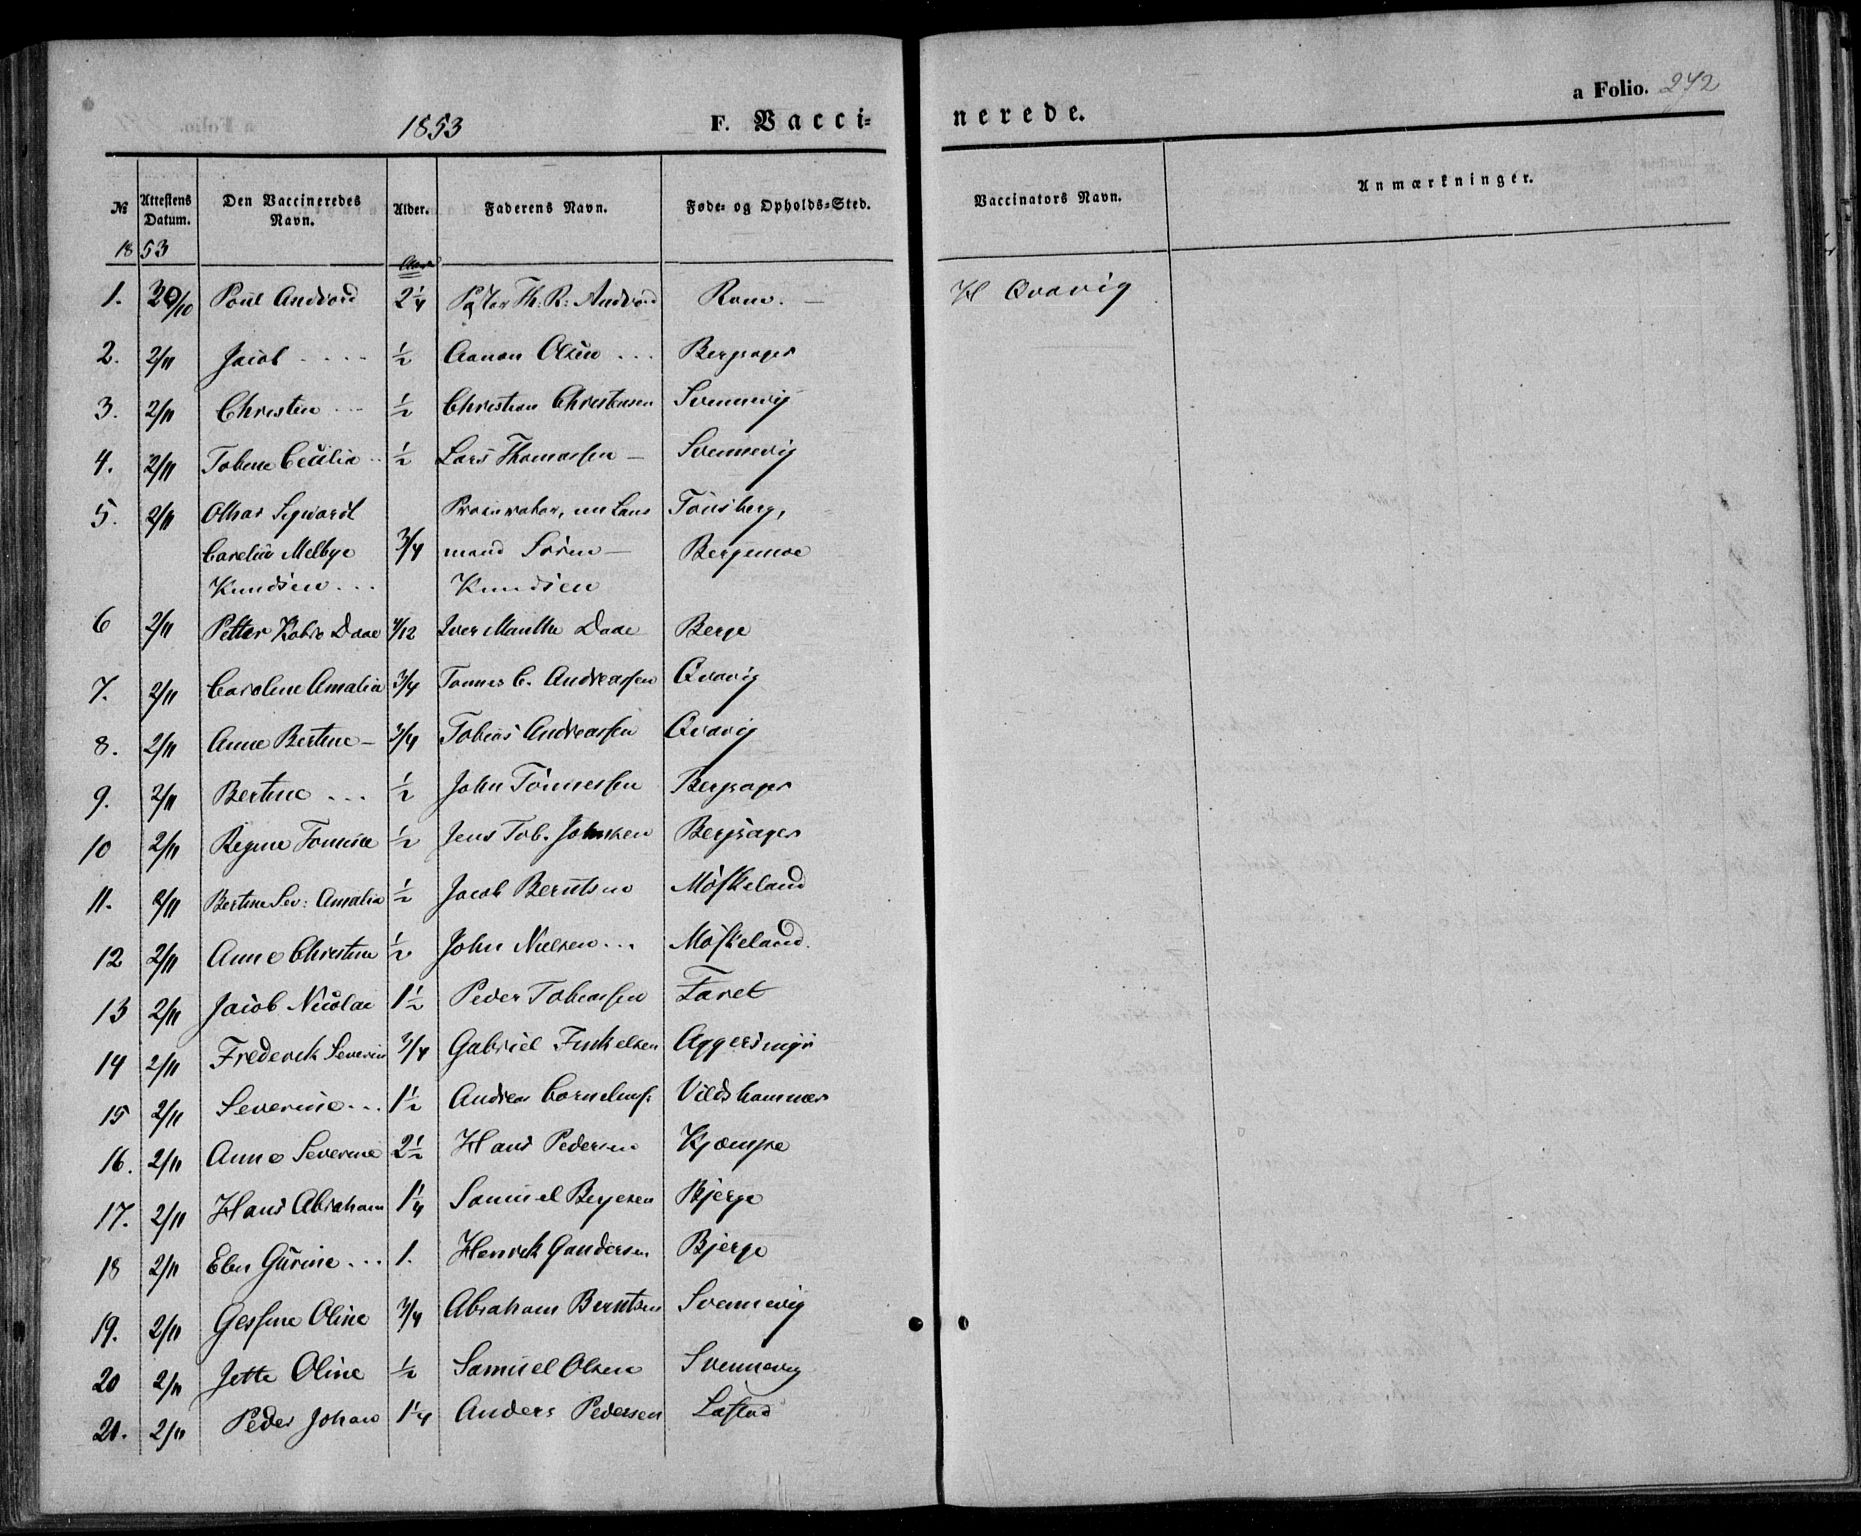 a Folio. 242
1853 F. Vacci- nerede.
№ Attestens Datum. Den Vaccineredes Navn. Alder. Faderens Navn. Føde- og Opholds-Sted. Vaccinators Navn. Anmærkninger.
1853 Aar
1. 30/10 Poul Andvord 2 1/4 Pastor Th. R: Andvord Rom. H Qvavig
2. 2/11 Jacob .... 1/2 Aanon Olsen ... Bergsager
3. 2/11 Christen ... 1/2 Christian Christensen Svennevig
4. 2/11 Tobine Cecilia .. 1/2 Lars Thomassen — Svennevig
5. 2/11 Othar Sigvardt Procurator, nu Lens Tønsberg,
Carelius Melbye 3/4 mand Søren — Bergemoe
Knudsen ... Knudsen
6 2/11 Petter Daae 4/12 Iver Daae Berge
7. 2/11 Caroline Amalia 3/4 Tønnes C. Andreassen Qvavig
8. 2/11 Anne Bertine — 3/4 Tobias Andreassen Qvavig
9. 2/11 Bertine ... 1/2 John Tønnessen Bergsager
10 2/11 Regine Tomine 1/2 Jens Tob. Johnsen Bergsager
11. 2/11 Bertine Sev: Amalia 1/2 Jacob Berntsen Møskeland
12 2/11 Anne Christine 1/2 John Nielsen ... Møskeland.
13 2/11 Jacob Nicolai 1 1/2 Peder Tobiassen Faret
14 2/11 Frederick Severin 3/4 Gabriel
15 2/11 Severine ... 1 1/2 Andreas Corneliuss: Vildshammer
16. 2/11 Anne Severine 2 1/2 Hans Pedersen Kjæmpe
17. 2/11 Hans Abraham 1 1/4 Samuel Bjerge
18 2/11 Gurine ... 1. Henrik Gundersen Bjerge
19. 2/11 Gessine Oline 3/4 Abraham Berntsen Svennevig
20 2/11 Jette Oline 1/2 Samuel Olsen Svennevig
21. 2/11 Peder Johan 1 1/4 Anders Pedersen Lastad